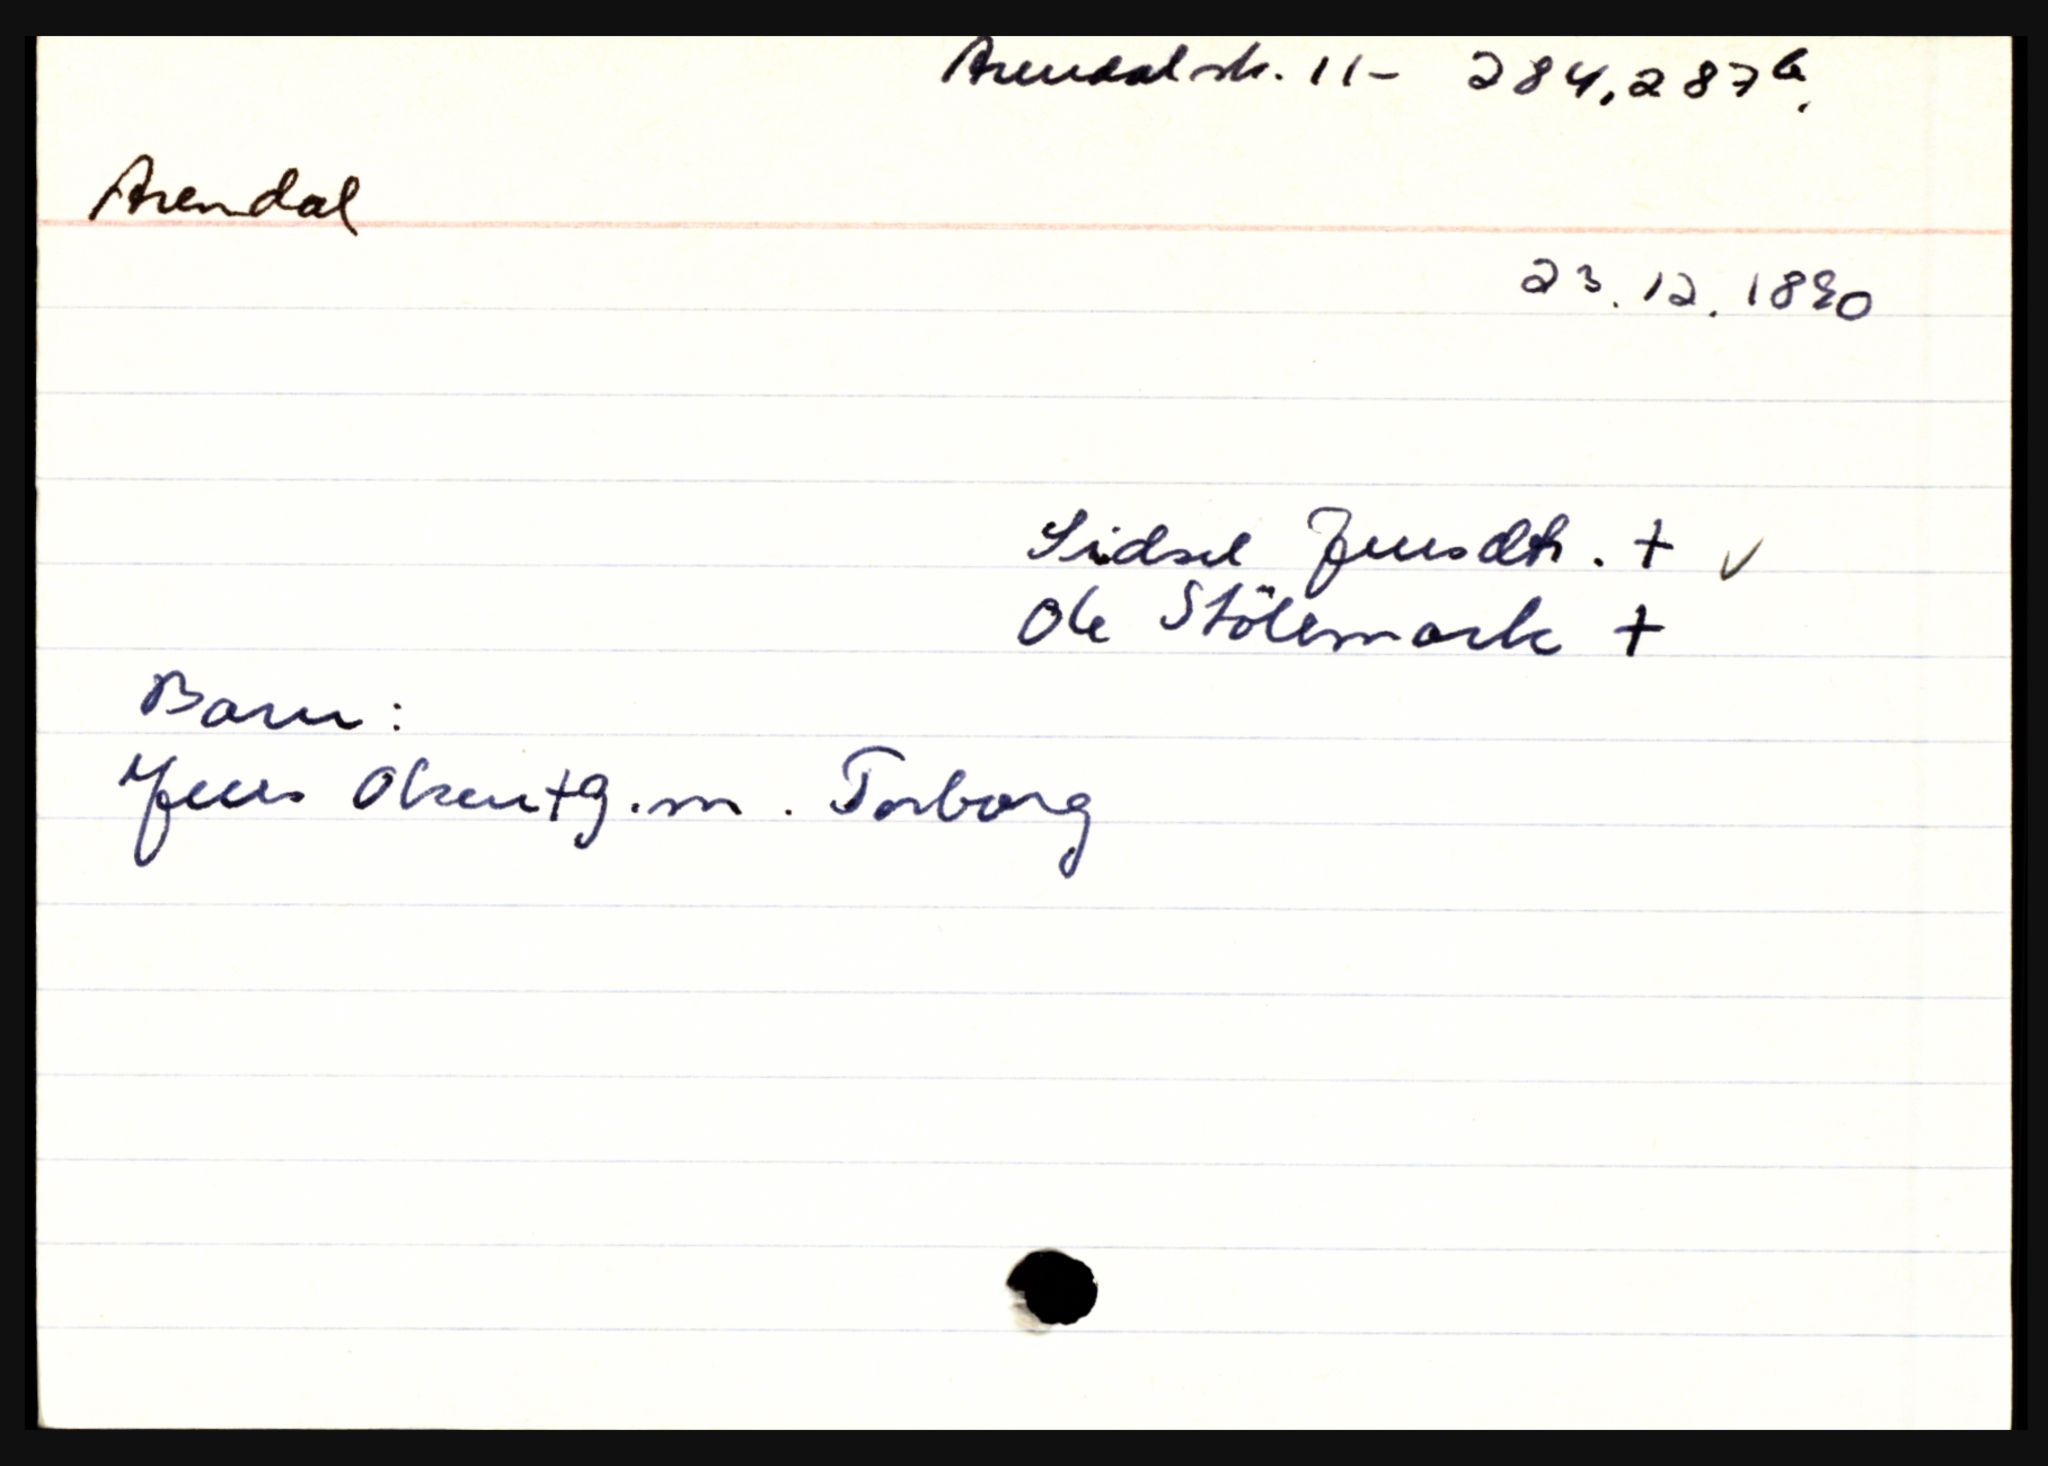 Arendal sk. 11 - 284, 287b.
Arendal
23.12.1830
Sidsel Jensdtr. + ✓
Ole Stölemark +
Barn:
Jens Olsen + g.m. Torborg